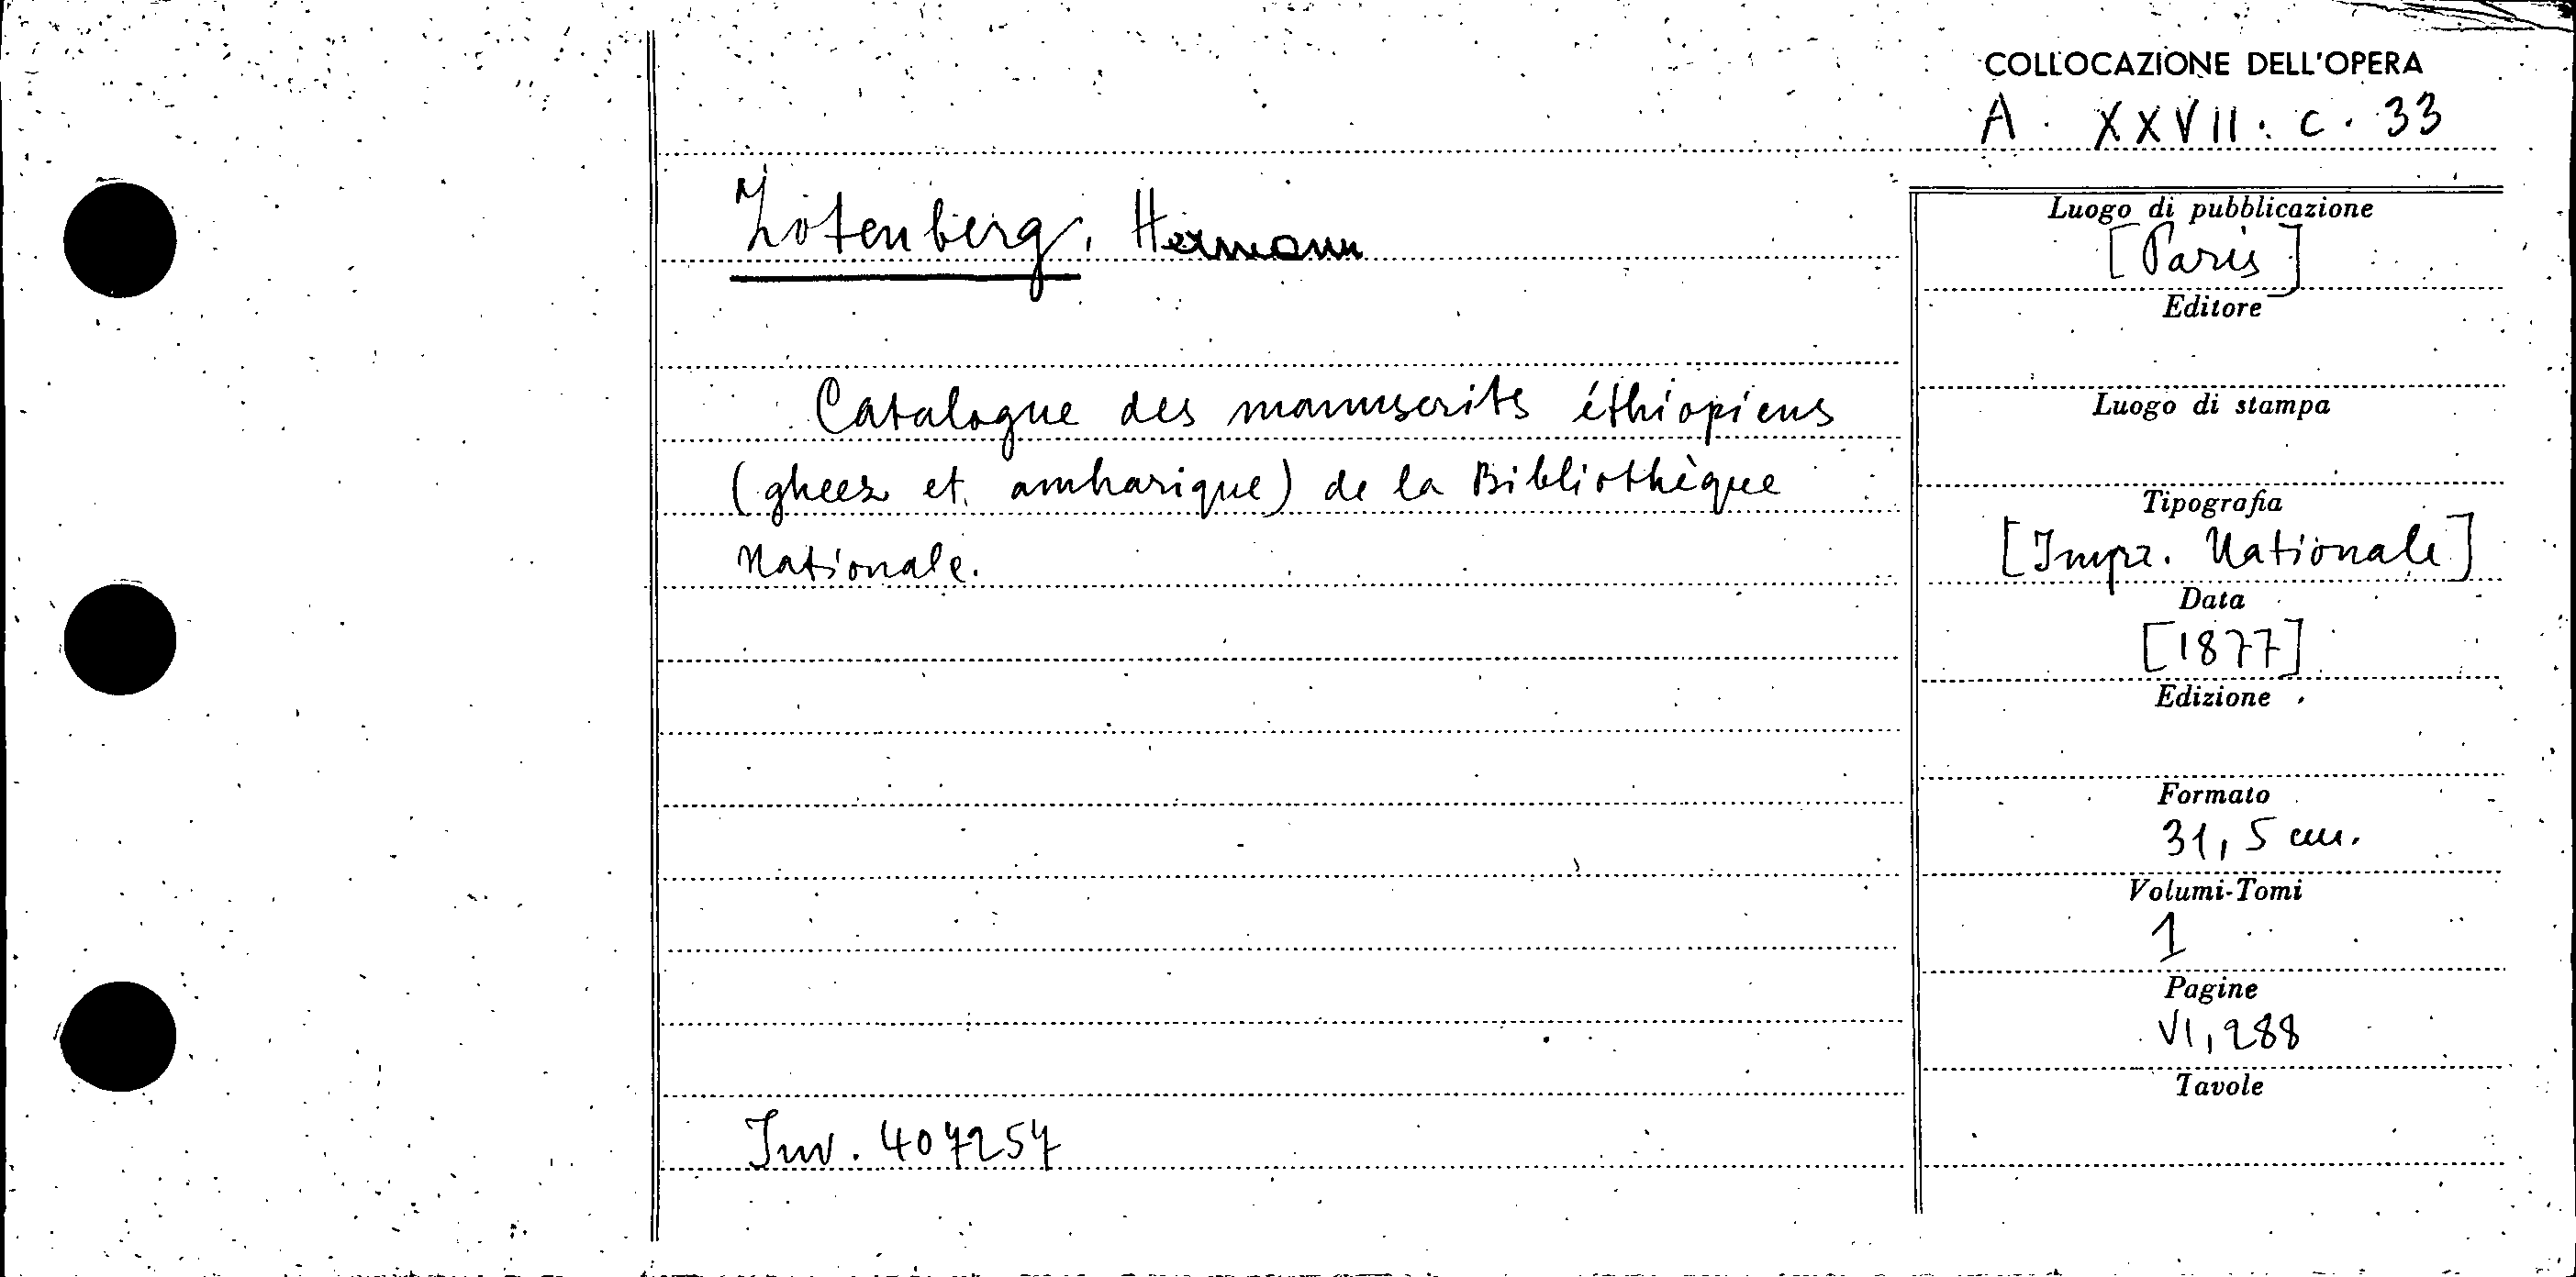 COLLOCAZIONE DELL'OPERA
A. XXVII. C. 33
Zotenberg, Hermann
Catalogue des manuscrits éthiopiens
(gheez et amharique) de la Bibliothèque
Nationale.
Inv. 407257
Luogo di pubblicazione
[Paris]
Editore
Luogo di stampa
Tipografia
[Impr. Nationale]
Data
[1877]
Edizione
Formato
31,5 cm.
Volumi-Tomi
1
Pagine
VI, 288
Tavole